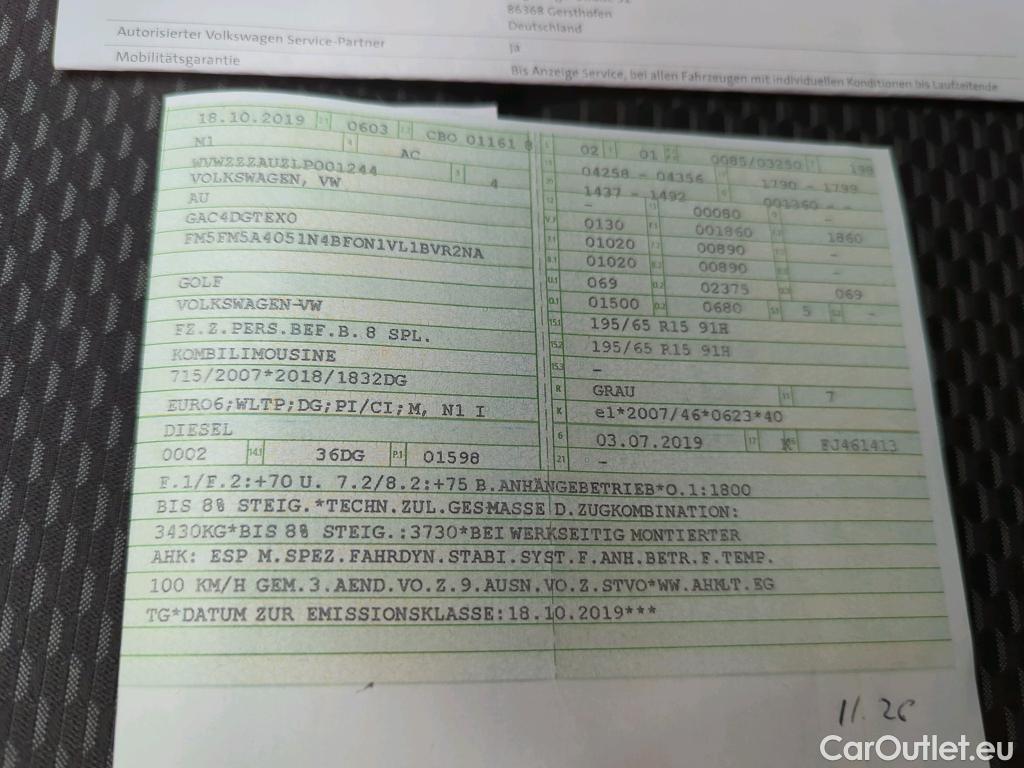 86368 Gersthofen
Deutschland
Autorisierter Volkswagen Service-Partner
Ja
Mobilitätsgarantie
Bis Anzeige Service, bei allen Fahrzeugen mit individuellen Konditionen bis Laufzeitende
18.10.2019 0603 CBO 01161 8
N1 AC
WVWZZZAUZLP001244 4
VOLKSWAGEN, VW
AU
GAC4DGTEX0
FM5FM5A4051N4BFON1VL1BVR2NA
GOLF
VOLKSWAGEN-VW
FZ.Z.PERS.BEF.B.8 SPL.
KOMBILIMOUSINE
715/2007*2018/1832DG
EURO6;WLTP;DG;PI/CI;M, N1 I
DIESEL
0002 14.1 36DG P.1 01598
02 01 0085/03250 198
04258 - 04356 1790 - 1799
1437 - 1492 001360 - -
12 - 13 00080 -
V.7 0130 F.1 001860 F.2 1860
7.1 01020 00890 -
8.1 01020 8.2 00890 -
U.1 069 U.2 02375 U.3 069
O.1 01500 O.2 0680 S.1 5 S.2 -
15.1 195/65 R15 91H
15.2 195/65 R15 91H
15.3 -
R GRAU 11 7
K e1*2007/46*0623*40
6 03.07.2019 17 K 16 FJ461413
21 -
F.1/F.2:+70 U. 7.2/8.2:+75 B.ANHÄNGEBETRIEB*O.1:1800
BIS 8% STEIG.*TECHN.ZUL.GESMASSE D.ZUGKOMBINATION:
3430KG*BIS 8% STEIG.:3730*BEI WERKSEITIG MONTIERTER
AHK: ESP M.SPEZ.FAHRDYN.STABI.SYST.F.ANH.BETR.F.TEMP.
100 KM/H GEM.3.AEND.VO.Z.9.AUSN.VO.Z.STVO*WW.AHMLT.EG
TG*DATUM ZUR EMISSIONSKLASSE:18.10.2019***
11.26
CarOutlet.eu